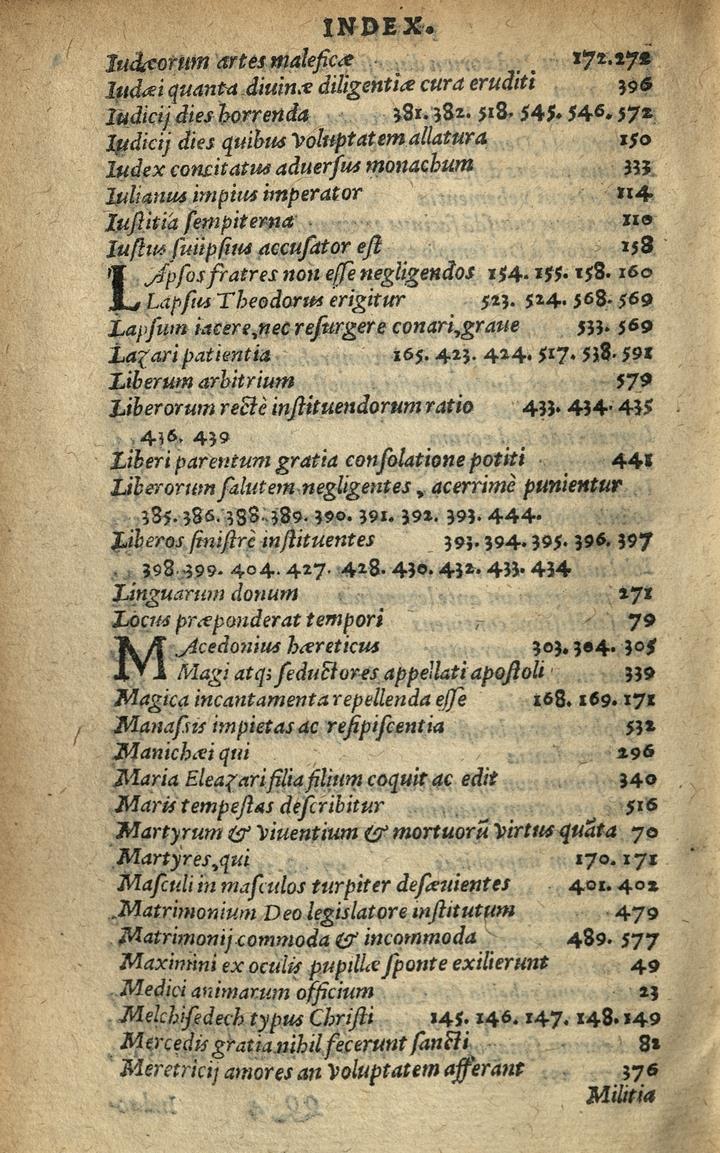 INDEX.
Iudæorum artes maleficæ 172.272
Iudæi quanta diuinæ diligentiæ cura eruditi 396
Iudicij dies horrenda 381.382. 518. 545. 546. 572
Iudicij dies quibus voluptatem allatura 150
Iudex concitatus aduerſus monachum 333
Iulianus impius imperator 114
Iuſtitia ſempiterna 110
Iuſtus ſuiipſius accuſator eſt 158
LApſos fratres non eſſe negligendos 154. 155. 158. 160
Lapſus Theodorus erigitur 523. 524. 568. 569
Lapſum iacere,nec reſurgere conari,graue 533. 569
Lazari patientia 165. 423. 424. 517. 538. 591
Liberum arbitrium 579
Liberorum rectè inſtituendorum ratio 433. 434. 435
436. 439
Liberi parentum gratia conſolatione potiti 441
Liberorum ſalutem negligentes , acerrimè punientur
385. 386. 388. 389. 390. 391. 392. 393. 444.
Liberos ſiniſtrè inſtituentes 393. 394. 395. 396. 397
398. 399. 404. 427. 428. 430. 432. 433. 434
Linguarum donum 271
Locus præponderat tempori 79
MAcedonius hæreticus 303. 304. 305
Magi atq; ſeductores appellati apoſtoli 339
Magica incantamenta repellenda eſſe 168. 169. 171
Manaſsis impietas ac reſipiſcentia 532
Manichæi qui 296
Maria Eleazari filia filium coquit ac edit 340
Maris tempeſtas deſcribitur 516
Martyrum & viuentium & mortuorũ virtus quãta 70
Martyres,qui 170. 171
Maſculi in maſculos turpiter deſæuientes 401. 402
Matrimonium Deo legislatore inſtitutum 479
Matrimonij commoda & incommoda 489. 577
Maximini ex oculis pupillæ ſponte exilierunt 49
Medici animarum officium 23
Melchiſedech typus Chriſti 145. 146. 147. 148. 149
Mercedis gratia nihil fecerunt ſancti 82
Meretricij amores an voluptatem afferant 376
Militia